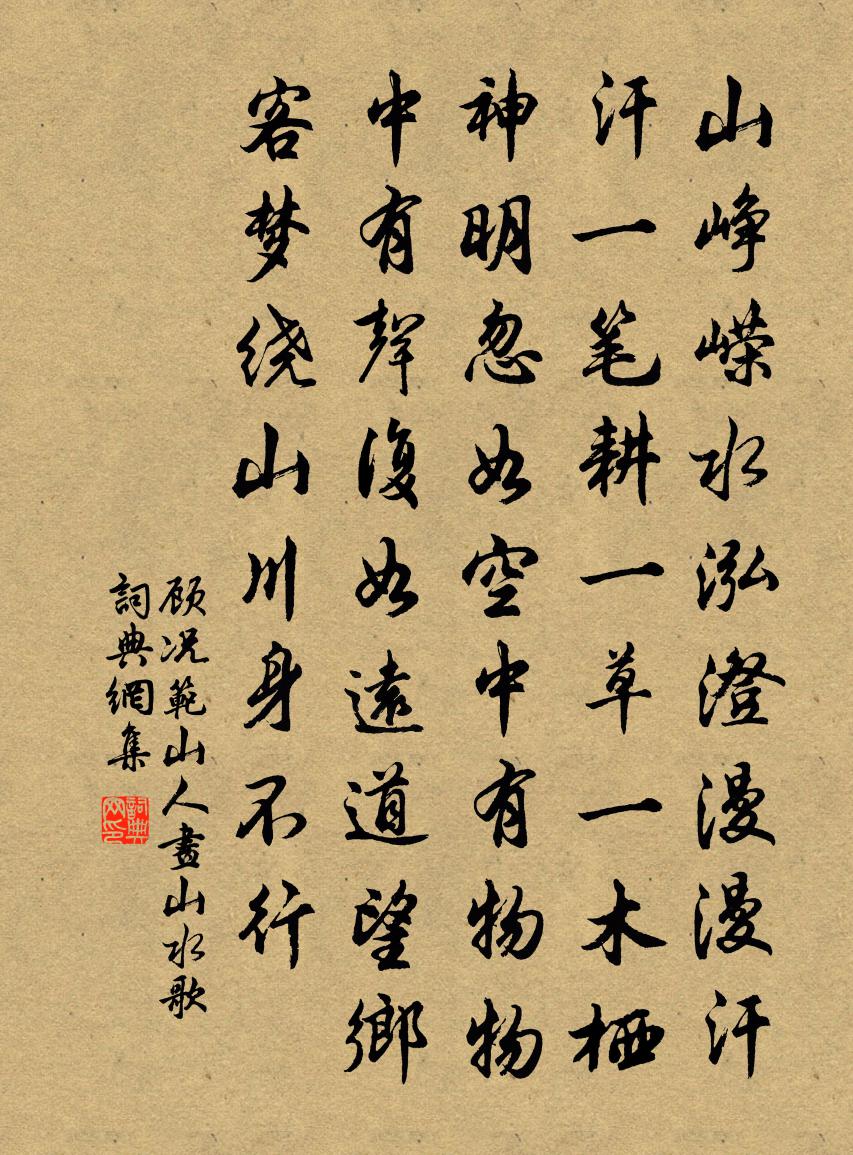 山峥嵘水泓澄漫漫汗
汗一笔耕一草一木栖
神明忽如空中有物物
中有聲復如遠道望鄉
客梦绕山川身不行
顾况範山人畫山水歌
詞典網集
詞典网印